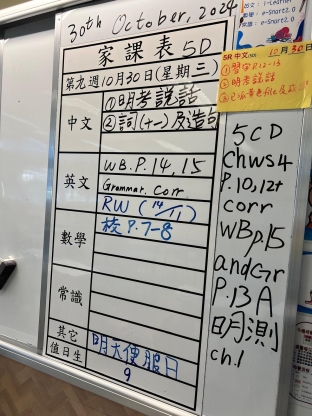 30th October, 2024
家課表 5D
第九週10月30日(星期三)
中文
①明考說話
②詞(十一)及造句
英文
WB.P.14,15
Grammar. Corr
RW (14/11)
數學
校 P.7-8
常識
其它
明天便服日
值日生
9
e-Smart2.0
e-Smart2.0
5R 中文
10月30日
①習字P.12-13
②明考說話
5CD
Chws4
P.10,12+
corr
WBp.15
and Gr
P.13A
明測
ch.1